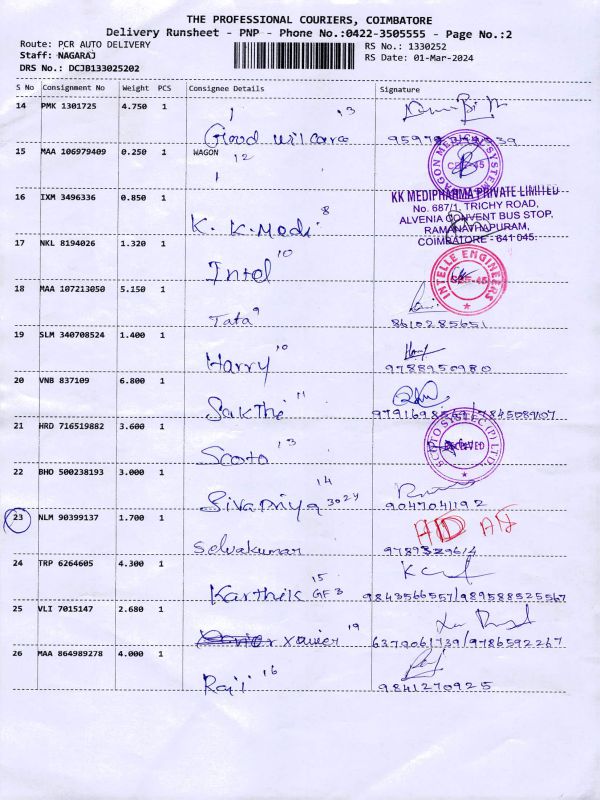 THE PROFESSIONAL COURIERS, COIMBATORE
Delivery Runsheet - PNP - Phone No.:0422-3505555 - Page No.:2
Route: PCR AUTO DELIVERY
RS No.: 1330252
Staff: NAGARAJ
RS Date: 01-Mar-2024
DRS No.: DCJB133025202
S No Consignment No Weight PCS Consignee Details Signature
14 PMK 1301725 4.750 1
13
Good will care
15 MAA 106979409 0.250 1 WAGON
12
16 IXM 3496336 0.850 1
KK MEDIPHARMA PRIVATE LIMITED
No. 687/1, TRICHY ROAD,
ALVENIA CONVENT BUS STOP,
RAMANATHAPURAM,
COIMBATORE - 641 045.
K. K. Medi 8
17 NKL 8194026 1.320 1
Intel 10
INTELLE ENGINEERS
18 MAA 107213050 5.150 1
Tata 9
8610285651
19 SLM 340708524 1.400 1
Harry 10
9788950980
20 VNB 837109 6.800 1
Sakthi 11
21 HRD 716519882 3.600 1
Scoto 13
22 BHO 500238193 3.000 1
14
Sivapriya 3024
9047041192
23 NLM 90399137 1.700 1
Selvakumar
24 TRP 6264605 4.300 1
15
Karthik GF 3
9843566557/989588525567
25 VLI 7015147 2.680 1
Xavier 19
6379061739/9786592267
26 MAA 864989278 4.000 1
Raji 16
9841270925